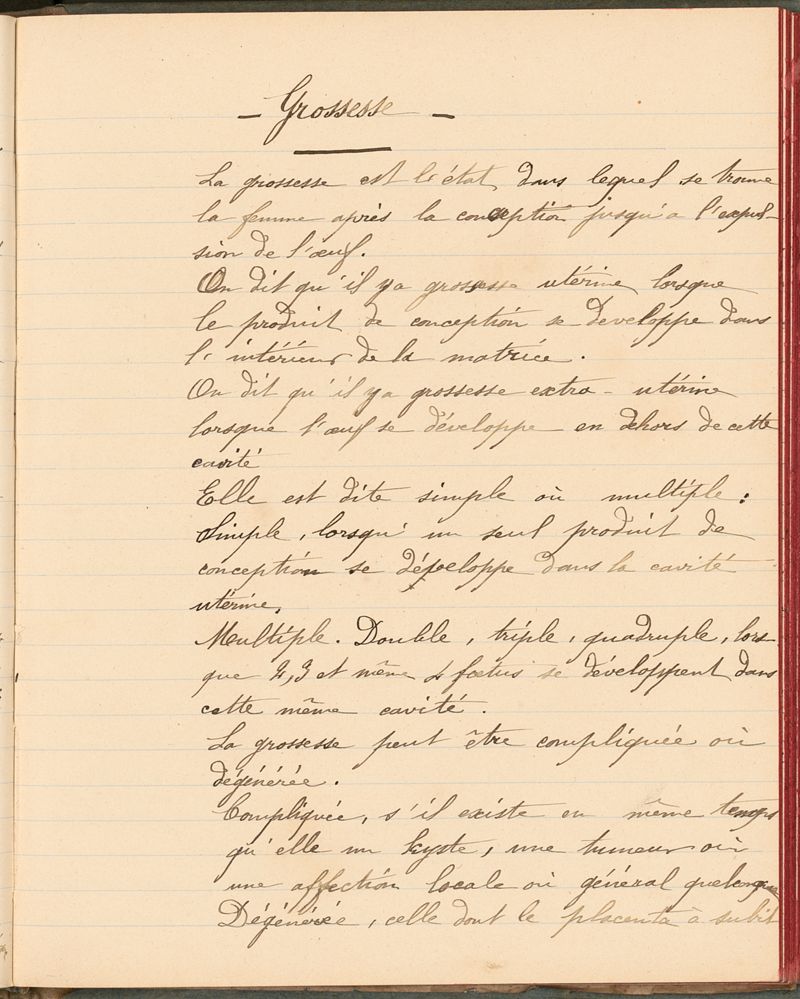 - Grossesse -
La grossesse est l'état, dans lequel se trouve
la femme après la conception jusqu'a l'expul-
sion de l'œuf.
On dit qu'il y a grossesse utérine lorsque
le produit de conception se developpe dans
l'intérieur de la matrice.
On dit qu'il y a grossesse extra-utérine
lorsque l'œuf se développe en dehors de cette
cavité
Elle est dite simple où multiple :
Simple, lorsqu'un seul produit de
conception se développe dans la cavité
utérine.
Meultiple. Double, triple, quadruple, lors-
que 2, 3 et même 4 fœtus se développent dans
cette même cavité.
La grossesse peut être compliquée où
dégénérée.
Compliquée, s'il existe en même temps
qu'elle un kyste, une tumeur où
une affection locale où général quelconque
Dégénérée, celle dont le placenta à subit